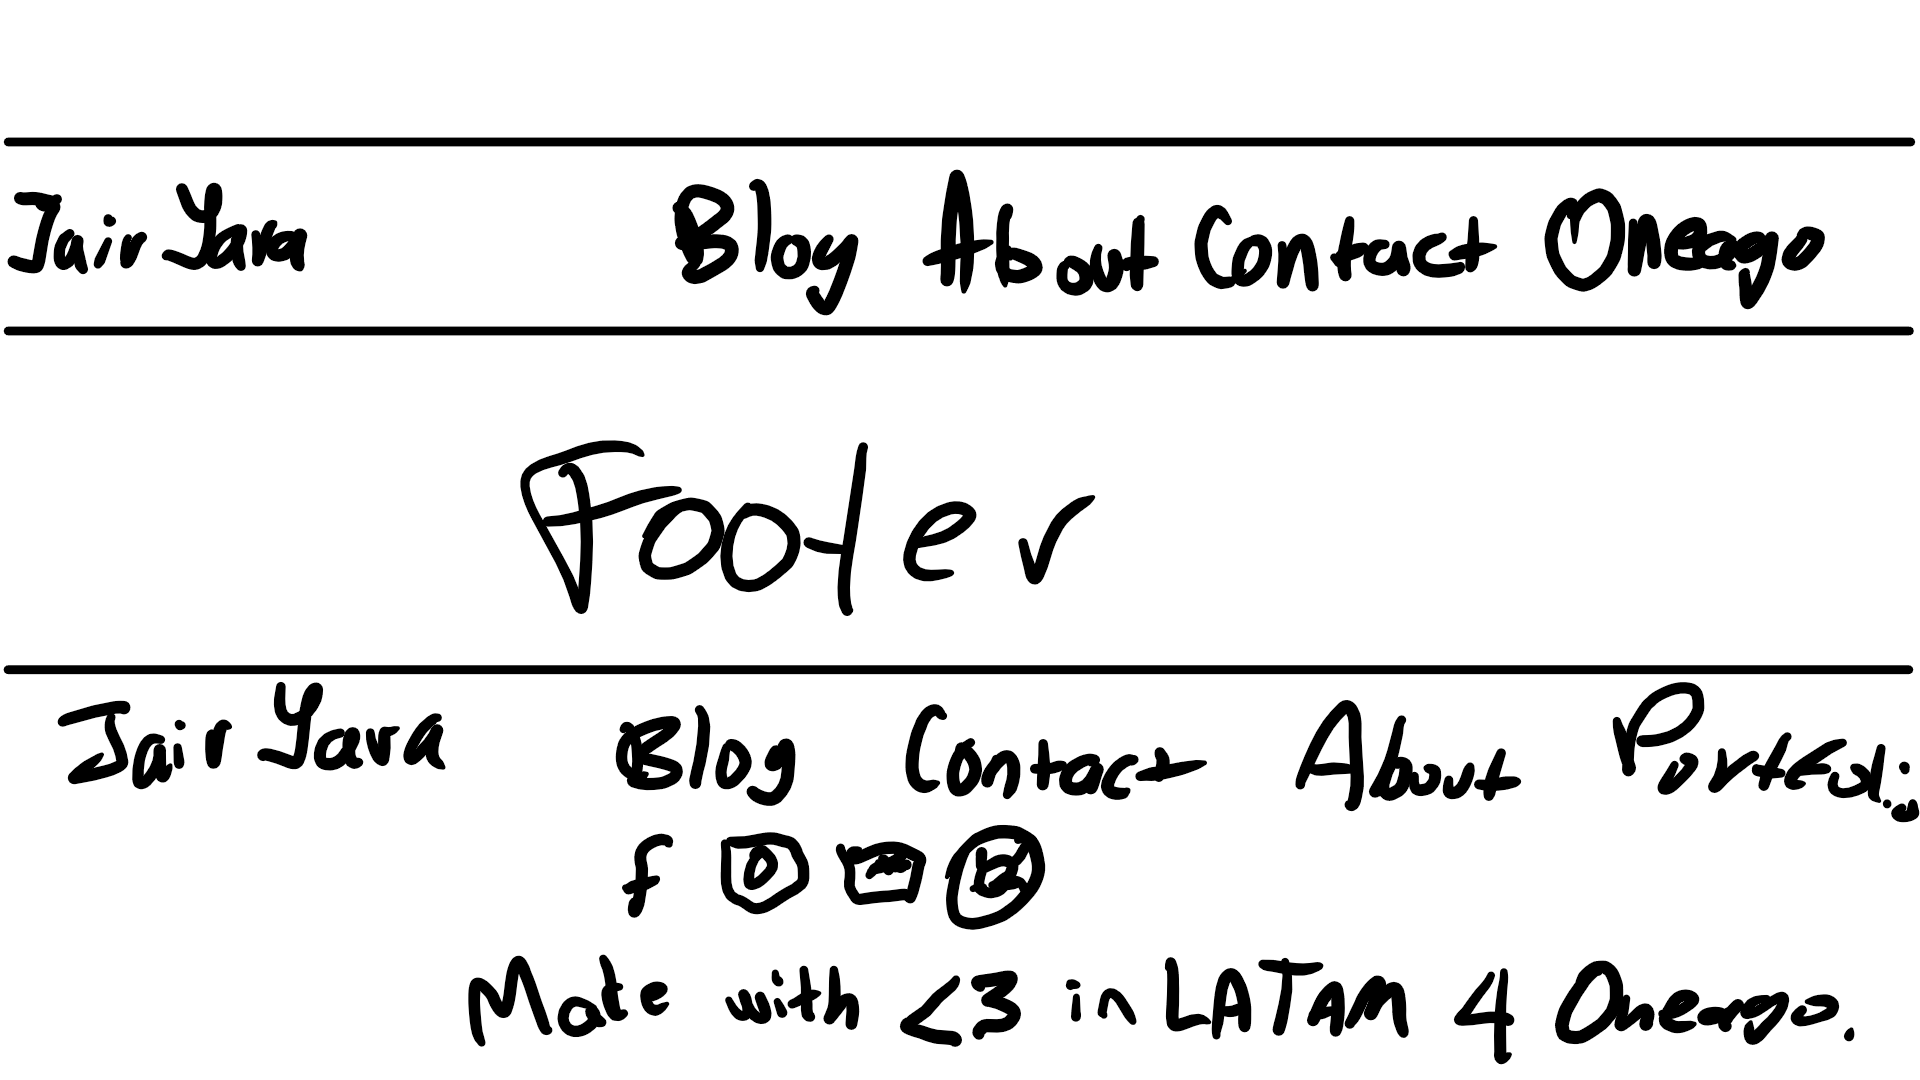 Jair Yara Blog About Contact Oneago
Footer
Jair Yara Blog Contact About Portfolio
f
Mate with <3 in LATAM 4 Oneago.